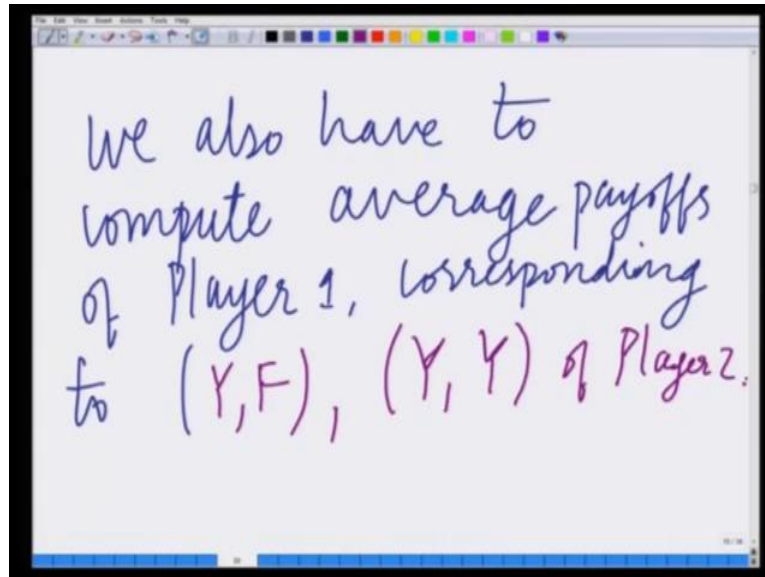 File Edit View Insert Actions Tools Help
We also have to
compute average payoffs
of Player 1, corresponding
to (Y,F), (Y,Y) of Player 2.